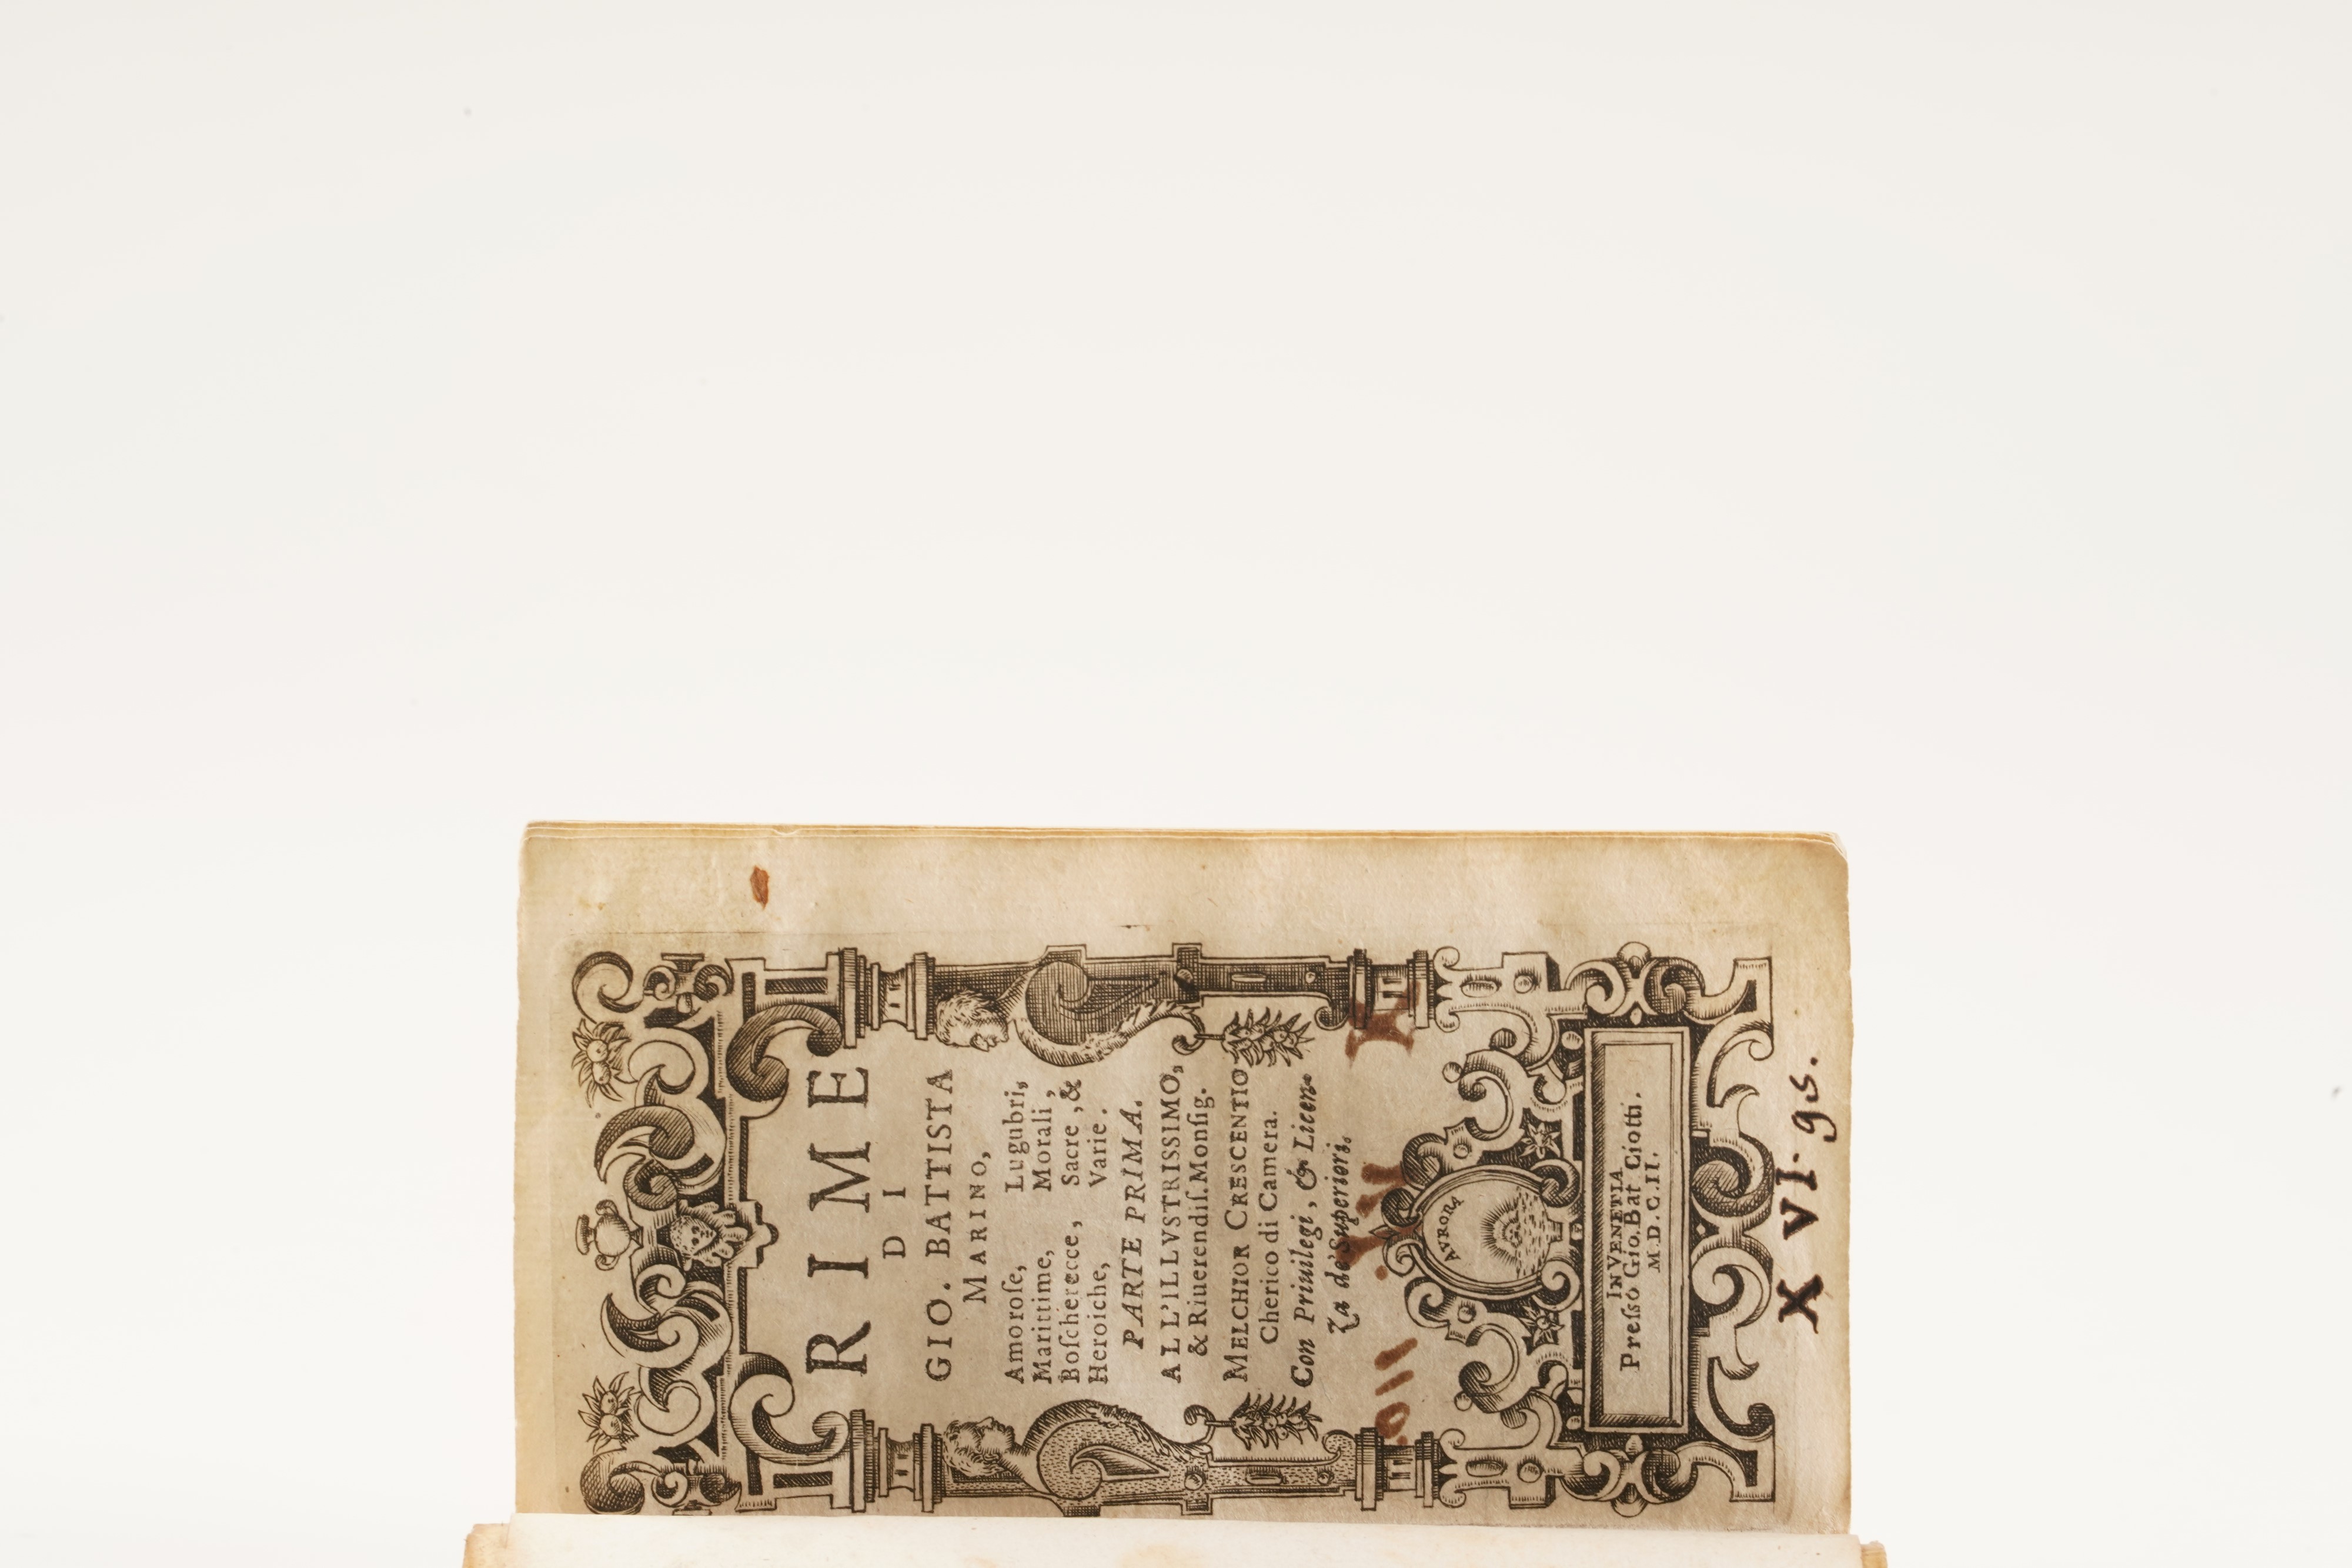 RIME
DI
GIO. BATTISTA
MARINO,
Amoroſe, Lugubri,
Marittime, Morali,
Boſcherecce, Sacre, &
Heroiche, Varie.
PARTE PRIMA.
ALL'ILLVSTRISSIMO,
& Riuerendiſſ. Monſig.
MELCHIOR CRESCENTIO,
Cherico di Camera.
Con Priuilegi, & Licen-
Za de' Superiori.
AVRORA
IN VENETIA
Preſso Gio. Bat Ciotti.
M.D.C.II.
X VI. gs.